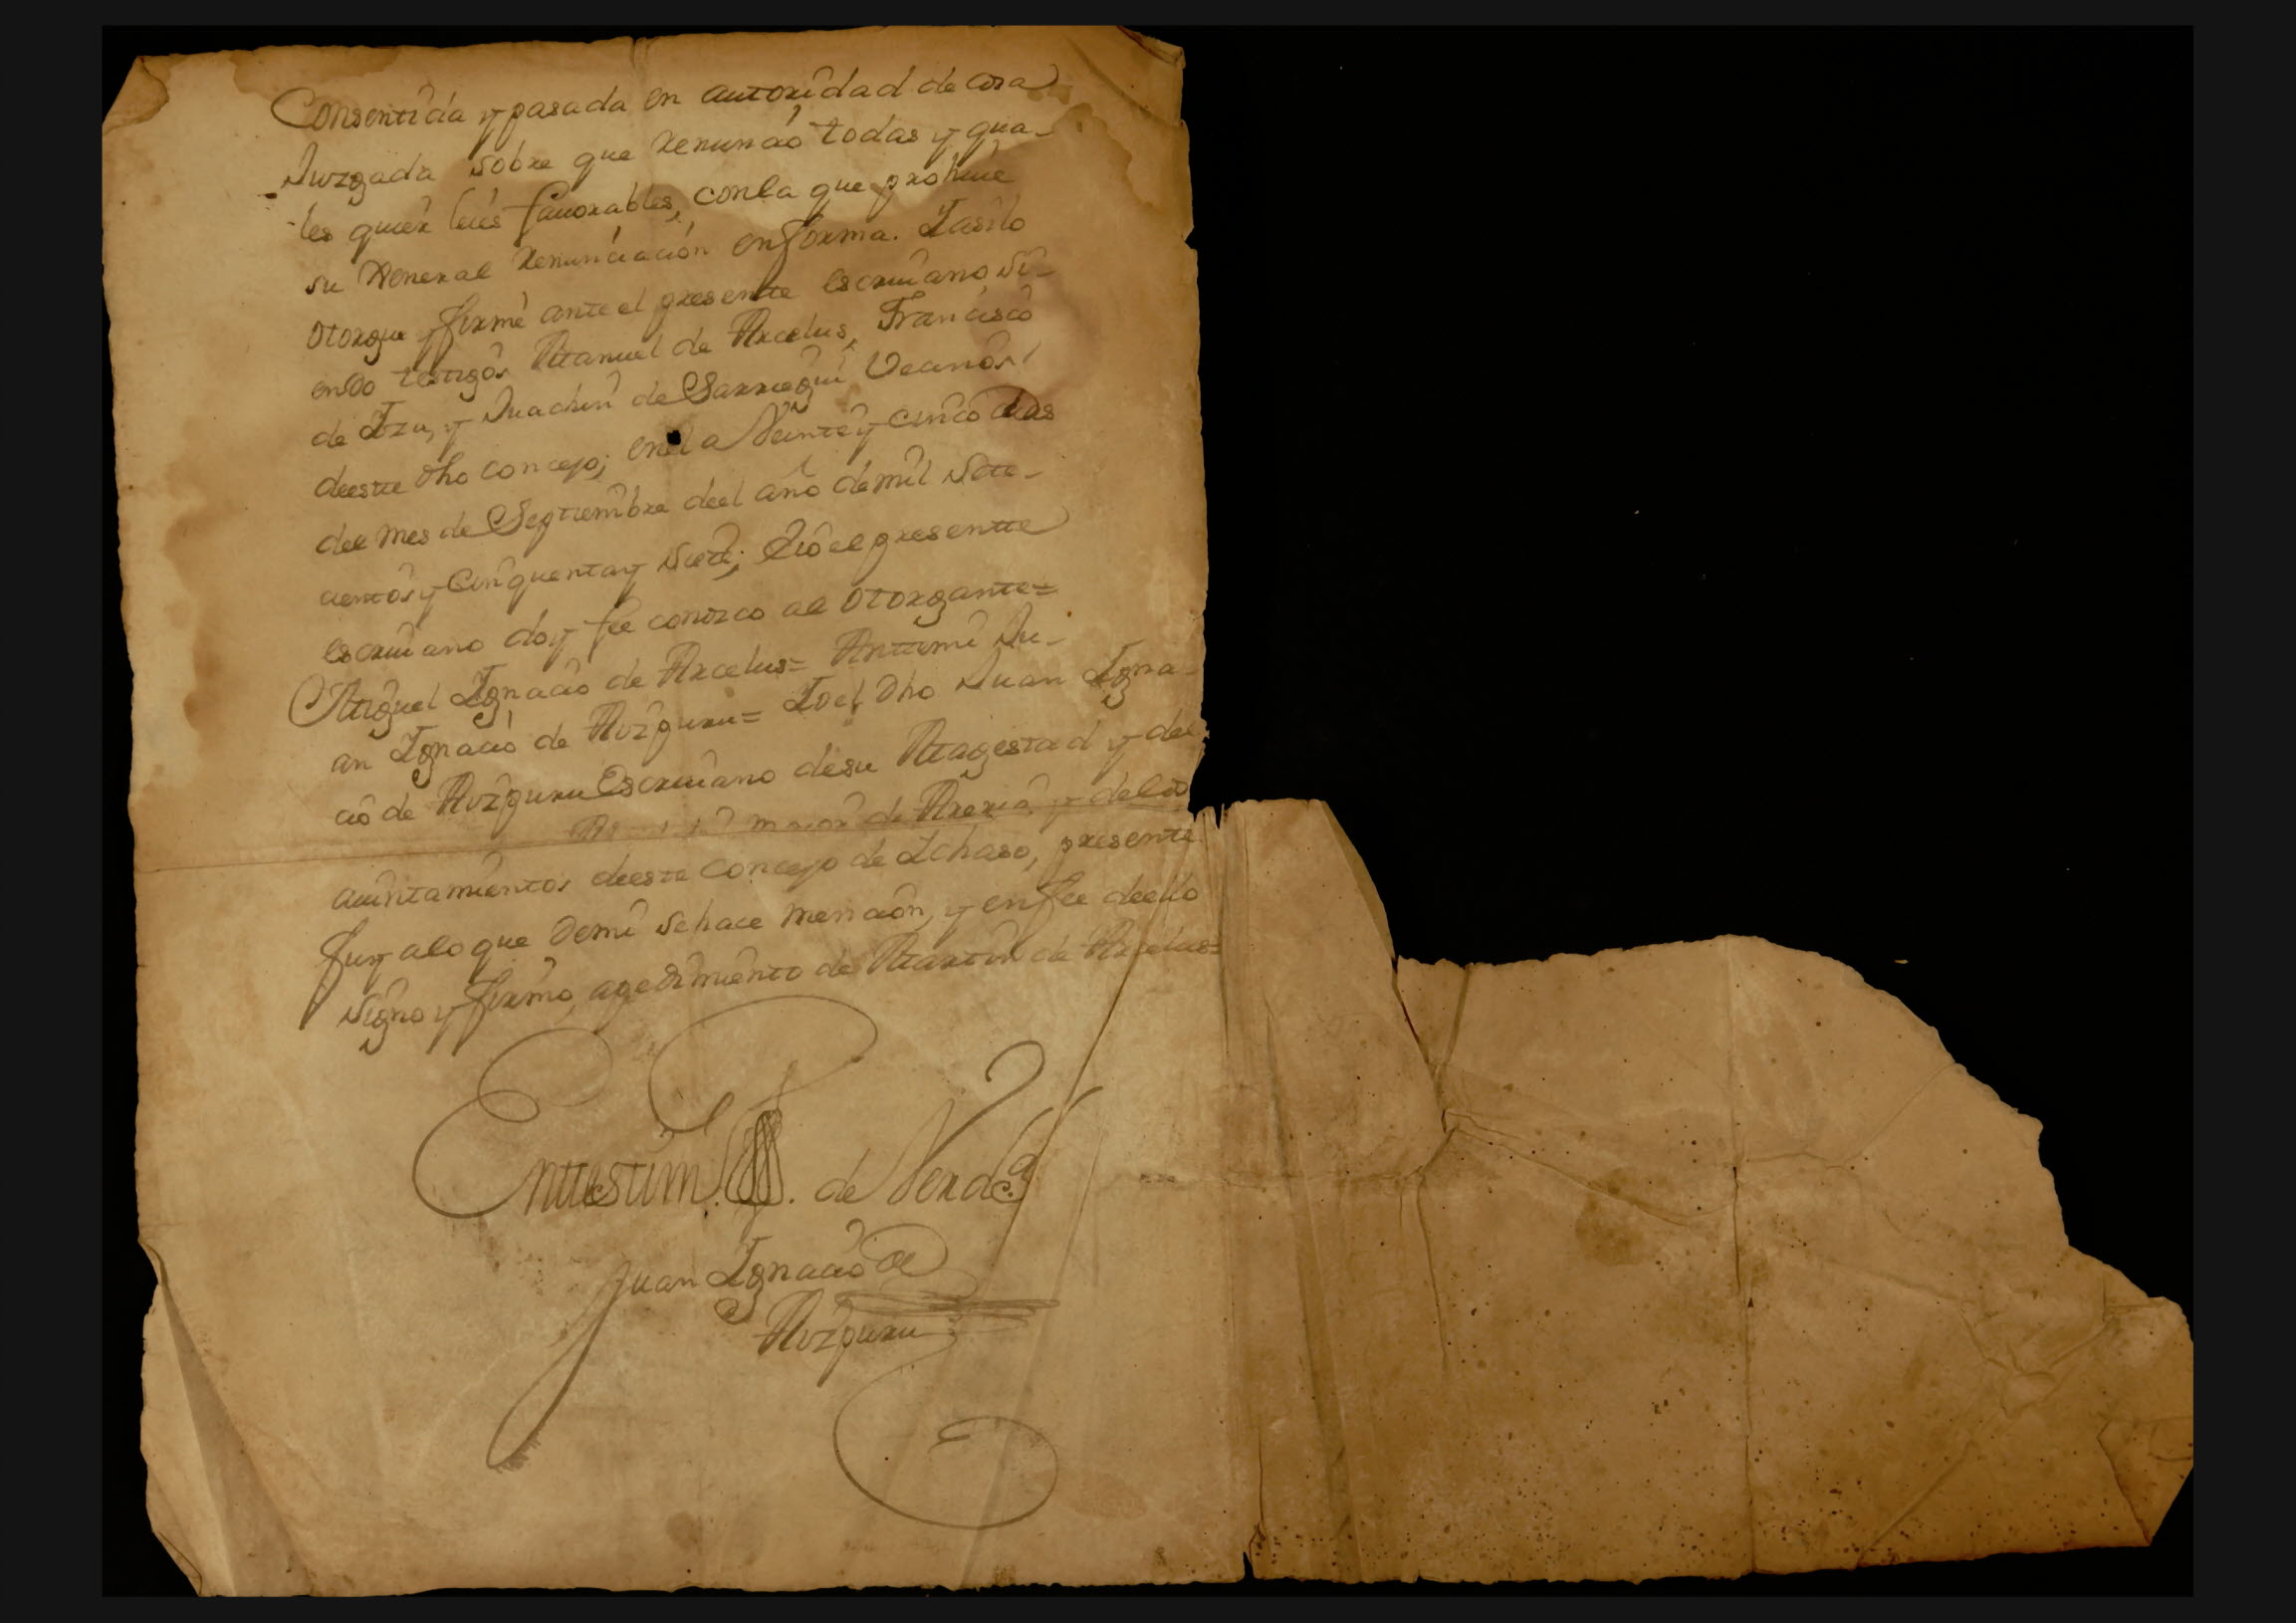 Consentida y pasada en autoridad de cosa
Juzgada sobre que renuncio todas y qua-
les quier leies fauorables, con la que prohiue
su General renunciación en forma. I asi lo
otorgue y firmé ante el presente escriuano, si-
endo testigos Manuel de Arcelus, Francisco
de Izu, y Juachin de Sarriegui Vecinos
deeste dho concejo; en el a Veinte y cinco dias
del mes de Septiembre deel año de mil sete-
cientos y Cinquenta y siete; Eio el presentte
escriuano doy fee conozco al Otorgante=
Miguel Ignacio de Arcelus= Anttemi Ju-
an Ignacio de Aizpuru= Io el dho Juan Igna-
cio de Aizpuru Escriuano desu Magestad y del
maior de Areria y delos
auintamientos deeste Concejo de Ichaso, presente
fuy alo que demi se hace mencion, y en fee deello
signo y firmo, apedimiento de Martin de Arcelus=
Enttestim. de Verd.
Juan Ignacio de
Aizpuru